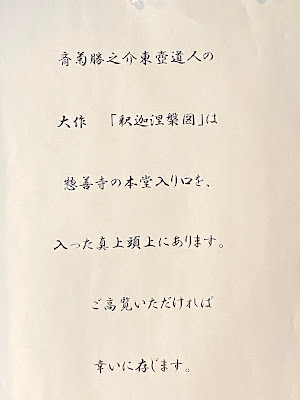 斉菊勝之介東壺道人の
大作 「釈迦涅槃図」は
惣善寺の本堂入り口を、
入った真上頭上にあります。
ご高覧いただければ
幸いに存じます。